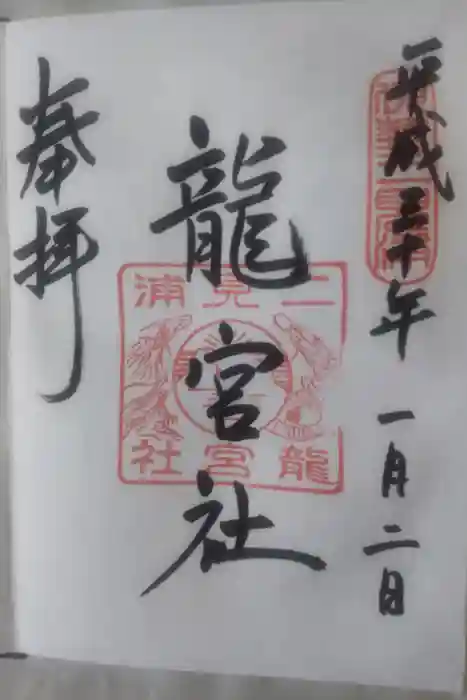 平成三十年 一月二日
龍宮社
奉拝
二見浦
龍宮社